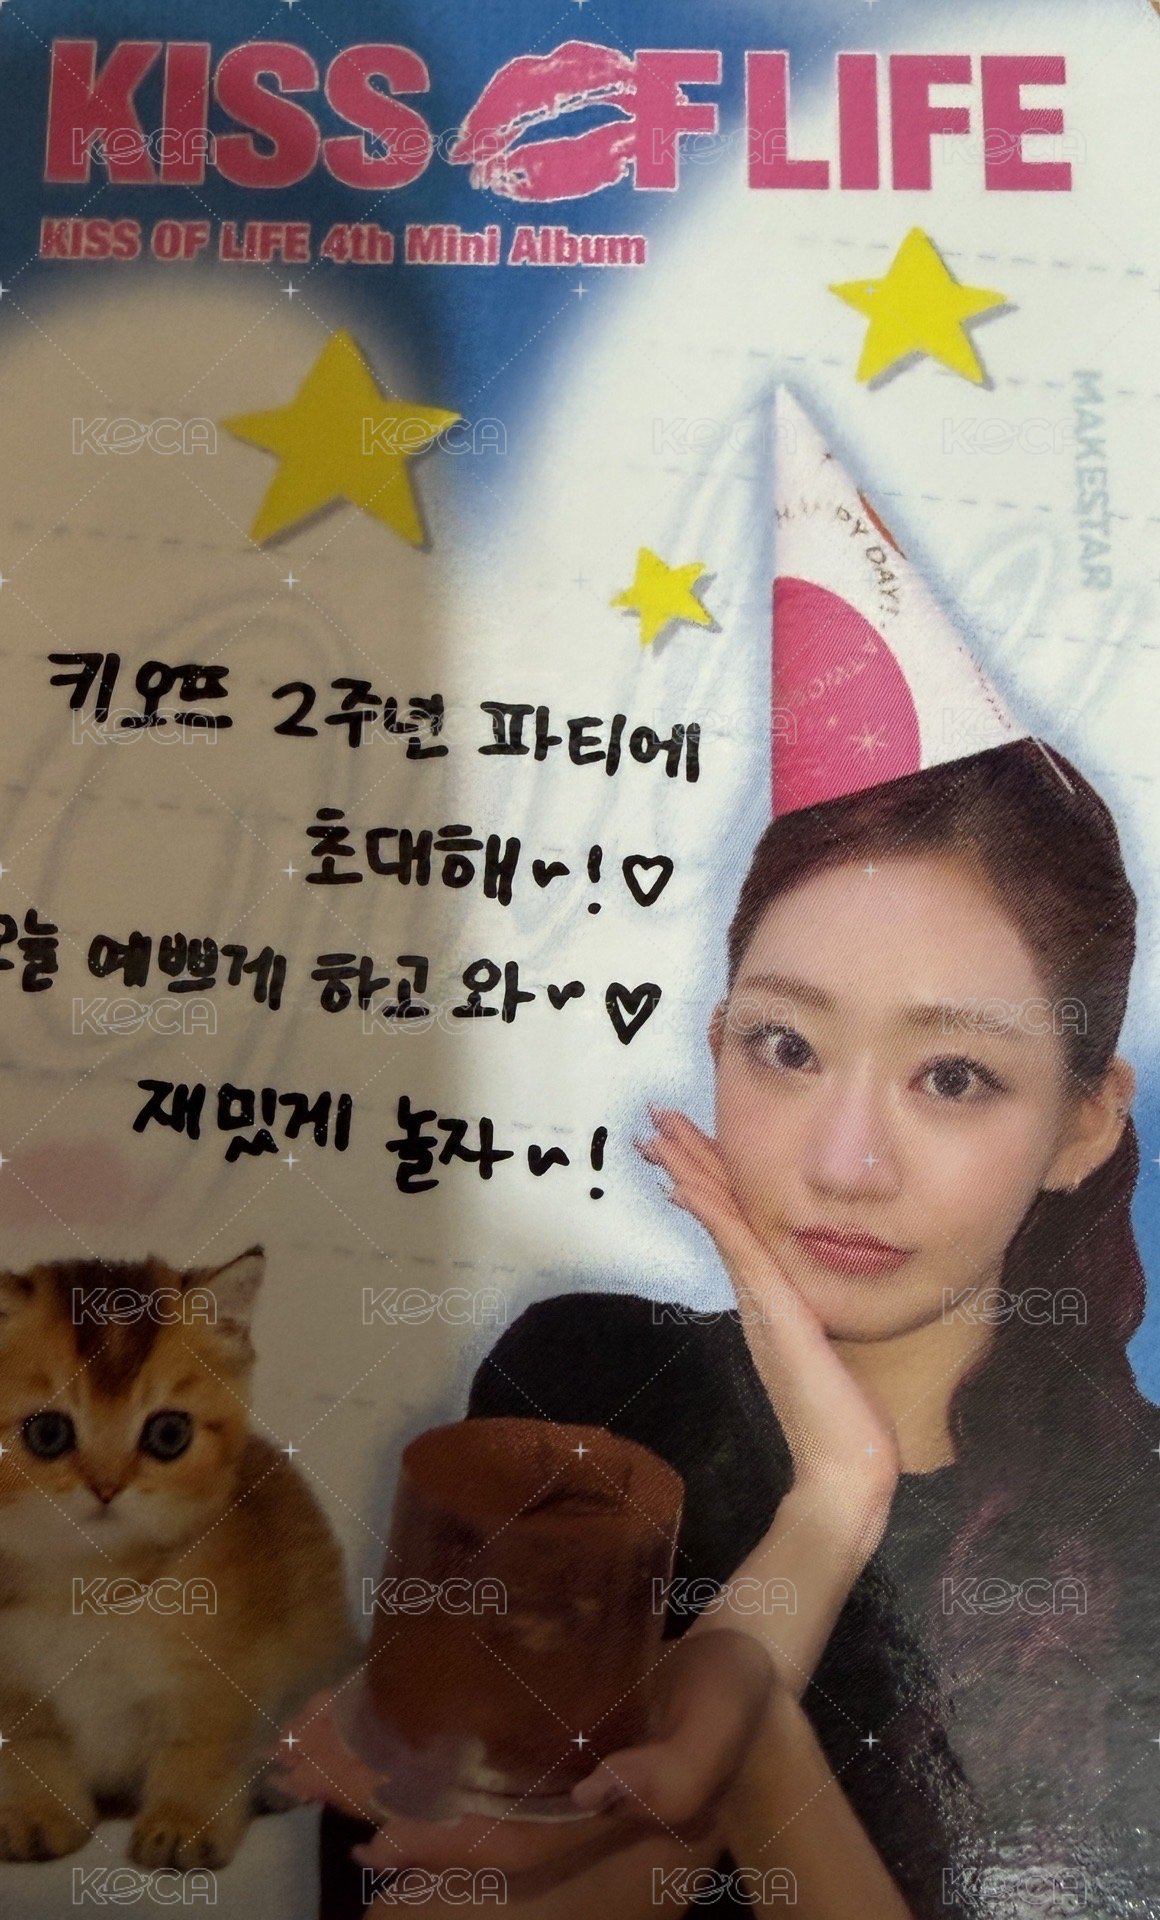 KISS OF LIFE
KISS OF LIFE 4th Mini Album
MAKESTAR
HAPPY DAY!
키오프 2주년 파티에
초대해~!♡
오늘 예쁘게 하고 와~♡
재밌게 놀자~!
KOCA KOCA KOCA KOCA
KOCA KOCA KOCA KOCA
KOCA KOCA KOCA KOCA
KOCA KOCA KOCA KOCA
KOCA KOCA KOCA KOCA
KOCA KOCA KOCA KOCA
KOCA KOCA KOCA KOCA